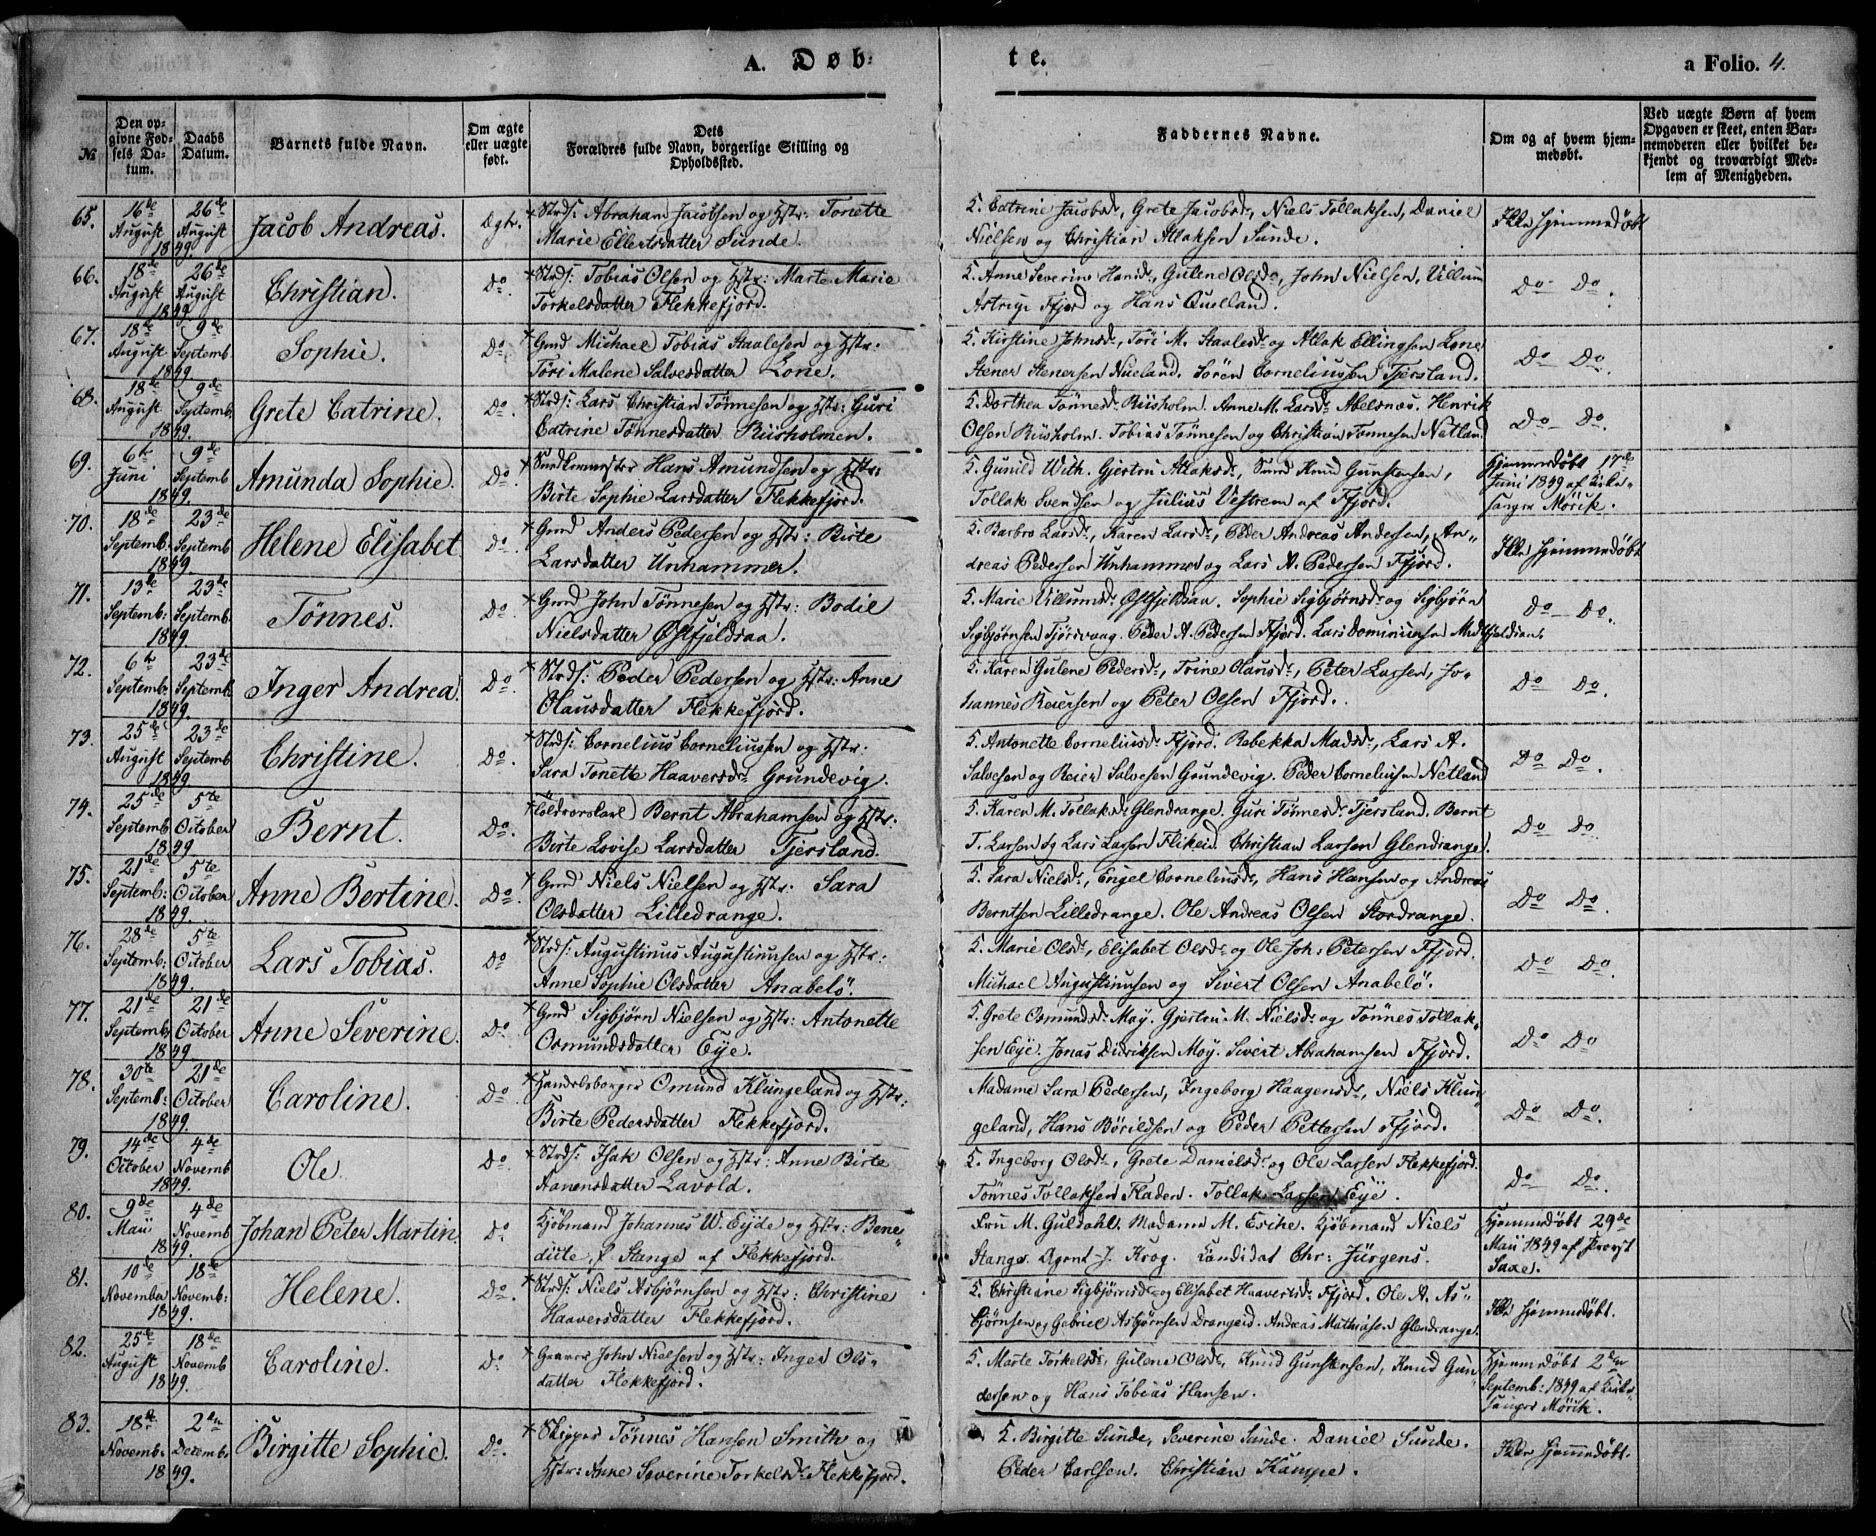 A. Døb-
te.
a Folio. 4.
№
Den op-
givne Fød-
sels Da-
tum.
Daabs
Datum.
Barnets fulde Navn.
Om ægte
eller uægte
født.
Dets
Forældres fulde Navn, borgerlige Stilling og
Opholdssted.
Faddernes Navne.
Om og af hvem hjem-
medøbt.
Ved uægte Børn af hvem
Opgaven er skeet, enten Bar-
nemoderen eller hvilket be-
kjendt og troværdigt Med-
lem af Menigheden.
65. 16de August 1849. 26de August Jacob Andreas. Strds: Abraham Jacobsen og Hstr: Tonette
Marie Ellertsdatter Sunde.
5. Catrine Jacobsdr, Grete Jacobsdr, Niels Tollaksen, Daniel
Nielsen og Christian Atlaksen Sunde.
Ikke hjemmedøbt
66. 18de August 1849. 26de August Christian. Do. Strds: Tobias Olsen og Hstr: Marte Marie
Torkelsdatter Flekkefjord.
5. Anne Severine Hansdr, Gulene Olsdr, John Nielsen, Villum
Astrup Ffjord og Hans Quelland.
Do Do.
67. 18de August 1849. 9de Septemb. Sophie. Do Gmd Michael Tobias Staalesen og Hstr:
Töri Malene Salvesdatter Lone.
5. Kirstine Johnsdr, Töri M. Staalesdr og Atlak Ellingsen Lone
Stener Stenersen Nueland. Sören Corneliussen Tjersland.
Do Do.
68. 18de August 1849. 9de Septemb. Grete Catrine. Do. Strds: Lars Christian Tönnesen og Hstr: Guri
Catrine Tönnesdatter Riisholmen.
5. Dorthea Tönnesdr Riisholm. Anne M. Larsdr Abelsnæs. Henrik
Olsen Riisholm. Tobias Tönnesen og Christian Tönnesen Netland
Do Do.
69. 6te Juni 1849. 9de Septemb Amunda Sophie. Do. Hans Amundsen og Hstr:
Birte Sophie Larsdatter Flekkefjord.
5. Gunild With. Gjertru Atlaksdr, Smed Knud Gunstensen,
Tollak Svendsen og Julius Vestrem af Ffjord.
Hjemmedøbt 17de
Juni 1849 af Kirke-
sanger Mörik.
70. 18de Septemb: 1849 23de Septemb Helene Elisabet Do. Gmd Anders Pedersen og Hstr: Birte
Larsdatter Unhammer.
5. Barbro Larsdr, Karen Larsdr, Peder Andreas Andersen, An-
dreas Pedersen Unhammer og Lars A. Pedersen Ffjord.
Ikke hjemmedøbt
71. 13de Septemb: 1849 23de Septemb. Tönnes. Do. Gmd John Tönnesen og Hstr: Bodil
Nielsdatter Østfjeldsaa.
5. Marie Villumsdr Østfjeldsaa. Sophie Sigbjørnsdr og Sigbjørn
Sigbjørnsen Tjörsvaag. Peder A. Pedersen Ffjord. Lars Dominiusen
Do Do.
72. 6te Septemb: 1849. 23de Septemb. Inger Andrea. Do. Strds: Peder Pedersen og Hstr: Anne
Olausdatter Flekkefjord.
5. Karen Gulene Pedersdr, Trine Olausdr, Peter Larsen, Jo-
hannes Reiersen og Peter Olsen Ffjord.
Do Do.
73. 25de August 1849 23de Septemb Christine. Do. Strds: Cornelius Corneliussen og Hstr:
Sara Tonette Haaversdr Grundevig.
5. Antonette Corneliusdr Ffjord. Rebekka Madsdr, Lars A.
Salvesen og Reier Salvesen Grundevig. Peder Corneliusen Netland
Do Do.
74. 25de Septemb. 1849 5te October Bernt. Do. Bernt Abrahamsen og Hstr:
Birte Lovise Larsdatter Tjersland.
5. Karen M. Tollaksdr Glendrange. Guri Tönnesdr Tjersland. Bernt
T. Larsen og Lars Larsen Flikeid. Christian Larsen Glendrange.
Do Do.
75. 21de Septemb: 1849. 5te October Anne Bertine. Do. Gmd Niels Nielsen og Hstr: Sara
Olsdatter Lilledrange.
5. Sara Nielsdr, Engel Corneliusdr, Hans Hansen og Andreas
Berntsen Lilledrange. Ole Andreas Olsen Stordrange.
Do Do.
76. 28de Septemb: 1849. 5te October Lars Tobias. Do Strds: Augustinus Augustinusen og Hstr:
Anne Sophie Olsdatter Anabelö.
5. Marie Olsdr, Elisabet Olsdr og Ole Joh: Petersen Ffjord.
Michael Augustinusen og Sivert Olsen Anabelö.
Do Do.
77. 21de Septemb. 1849. 21de October Anne Severine. Do. Gmd Sigbjörn Nielsen og Hstr: Antonette
Osmundsdatter Eye.
5. Grete Osmundsdr Moy. Gjertru M. Nielsdr og Tönnes Tollak-
sen Eye. Jonas Didriksen Moy. Sivert Abrahamsen Ffjord.
Do Do
78. 30te Septemb: 1849. 21de October Caroline. Do. Handelsborger Omund Klungeland og Hstr:
Birte Pedersdatter Flekkefjord.
Madame Sara Pedersen, Ingeborg Haagensdr, Niels Klun-
geland, Hans Börildsen og Peder Pettersen Ffjord.
Do Do.
79. 14de October 1849. 4de Novemb Ole. Do. Strds: Isak Olsen og Hstr: Anne Birte
Aanensdatter Lavold.
5. Ingeborg Olsdr, Grete Danielsdr og Ole Larsen Flekkefjord.
Tönnes Tollaksen Fladen. Tollak Larsen Eye.
Do Do.
80. 9de Maii 1849. 4de Novemb Johan Peter Martin. Do Kjöbmand Johannes W. Eyde og Hstr: Bene-
dicte f. Stange af Flekkefjord.
Fru M. Guldahl. Madame M. Eriche. Kjöbmand Niels
Stange. Agent J. Krog. Candidat Chr: Jürgens.
Hjemmedøbt 29de
Maii 1849 af Provst
Saxe.
81. 10de November 1849. 18de Novemb: Helene. Do. Strds: Niels Asbjørnsen og Hstr: Christine
Haaversdatter Flekkefjord.
5. Christiane Sigbjørnsdr og Elisabet Haaversdr Ffjord. Ole A. As-
bjørnsen og Gabriel Asbjørnsen Drangeid. Andreas Mathiasen Glendrange.
Ikke hjemmedøbt.
82. 25de August 1849. 18de Novemb Caroline. Do Graver John Nielsen og Hstr: Inger Ols-
datter Flekkefjord.
5. Marte Torkelsdr, Gulene Olsdr, Knud Gunstensen, Knud Gun-
dersen og Hans Tobias Hansen.
Hjemmedøbt 2den
Septemb: 1849 af Kirke-
sanger Mörik.
83. 18de Novemb: 1849. 2den Decemb. Birgitte Sophie. Do. Skipper Tönnes Hansen Smith og
Hstr: Anne Severine Torkelsdr Flekkefjord.
5. Birgitte Sunde, Severine Sunde. Daniel Sunde.
Peder Carlsen. Christian Kampe.
Ikke hjemmedøbt.